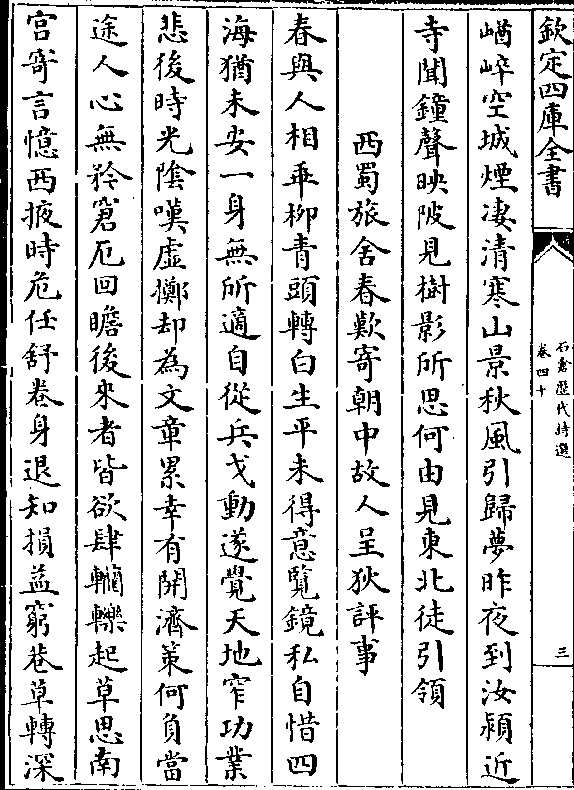 欽定四庫全書
石倉歷代詩選
卷四十
三
崷崪空城煙凄清寒山景秋風引歸夢昨夜到汝潁近
寺聞鐘聲映陂見樹影所思何由見東北徒引領
西蜀旅舍春歎寄朝中故人呈狄評事
春與人相乖柳青頭轉白生平未得意覽鏡私自惜四
海猶未安一身無所適自從兵戈動遂覺天地窄功業
悲後時光陰嘆虛擲却為文章累幸有開濟策何負當
途人心無矜窘厄回瞻後來者皆欲肆轥轢起草思南
宮寄言憶西掖時危任舒卷身退知損益窮巷草轉深